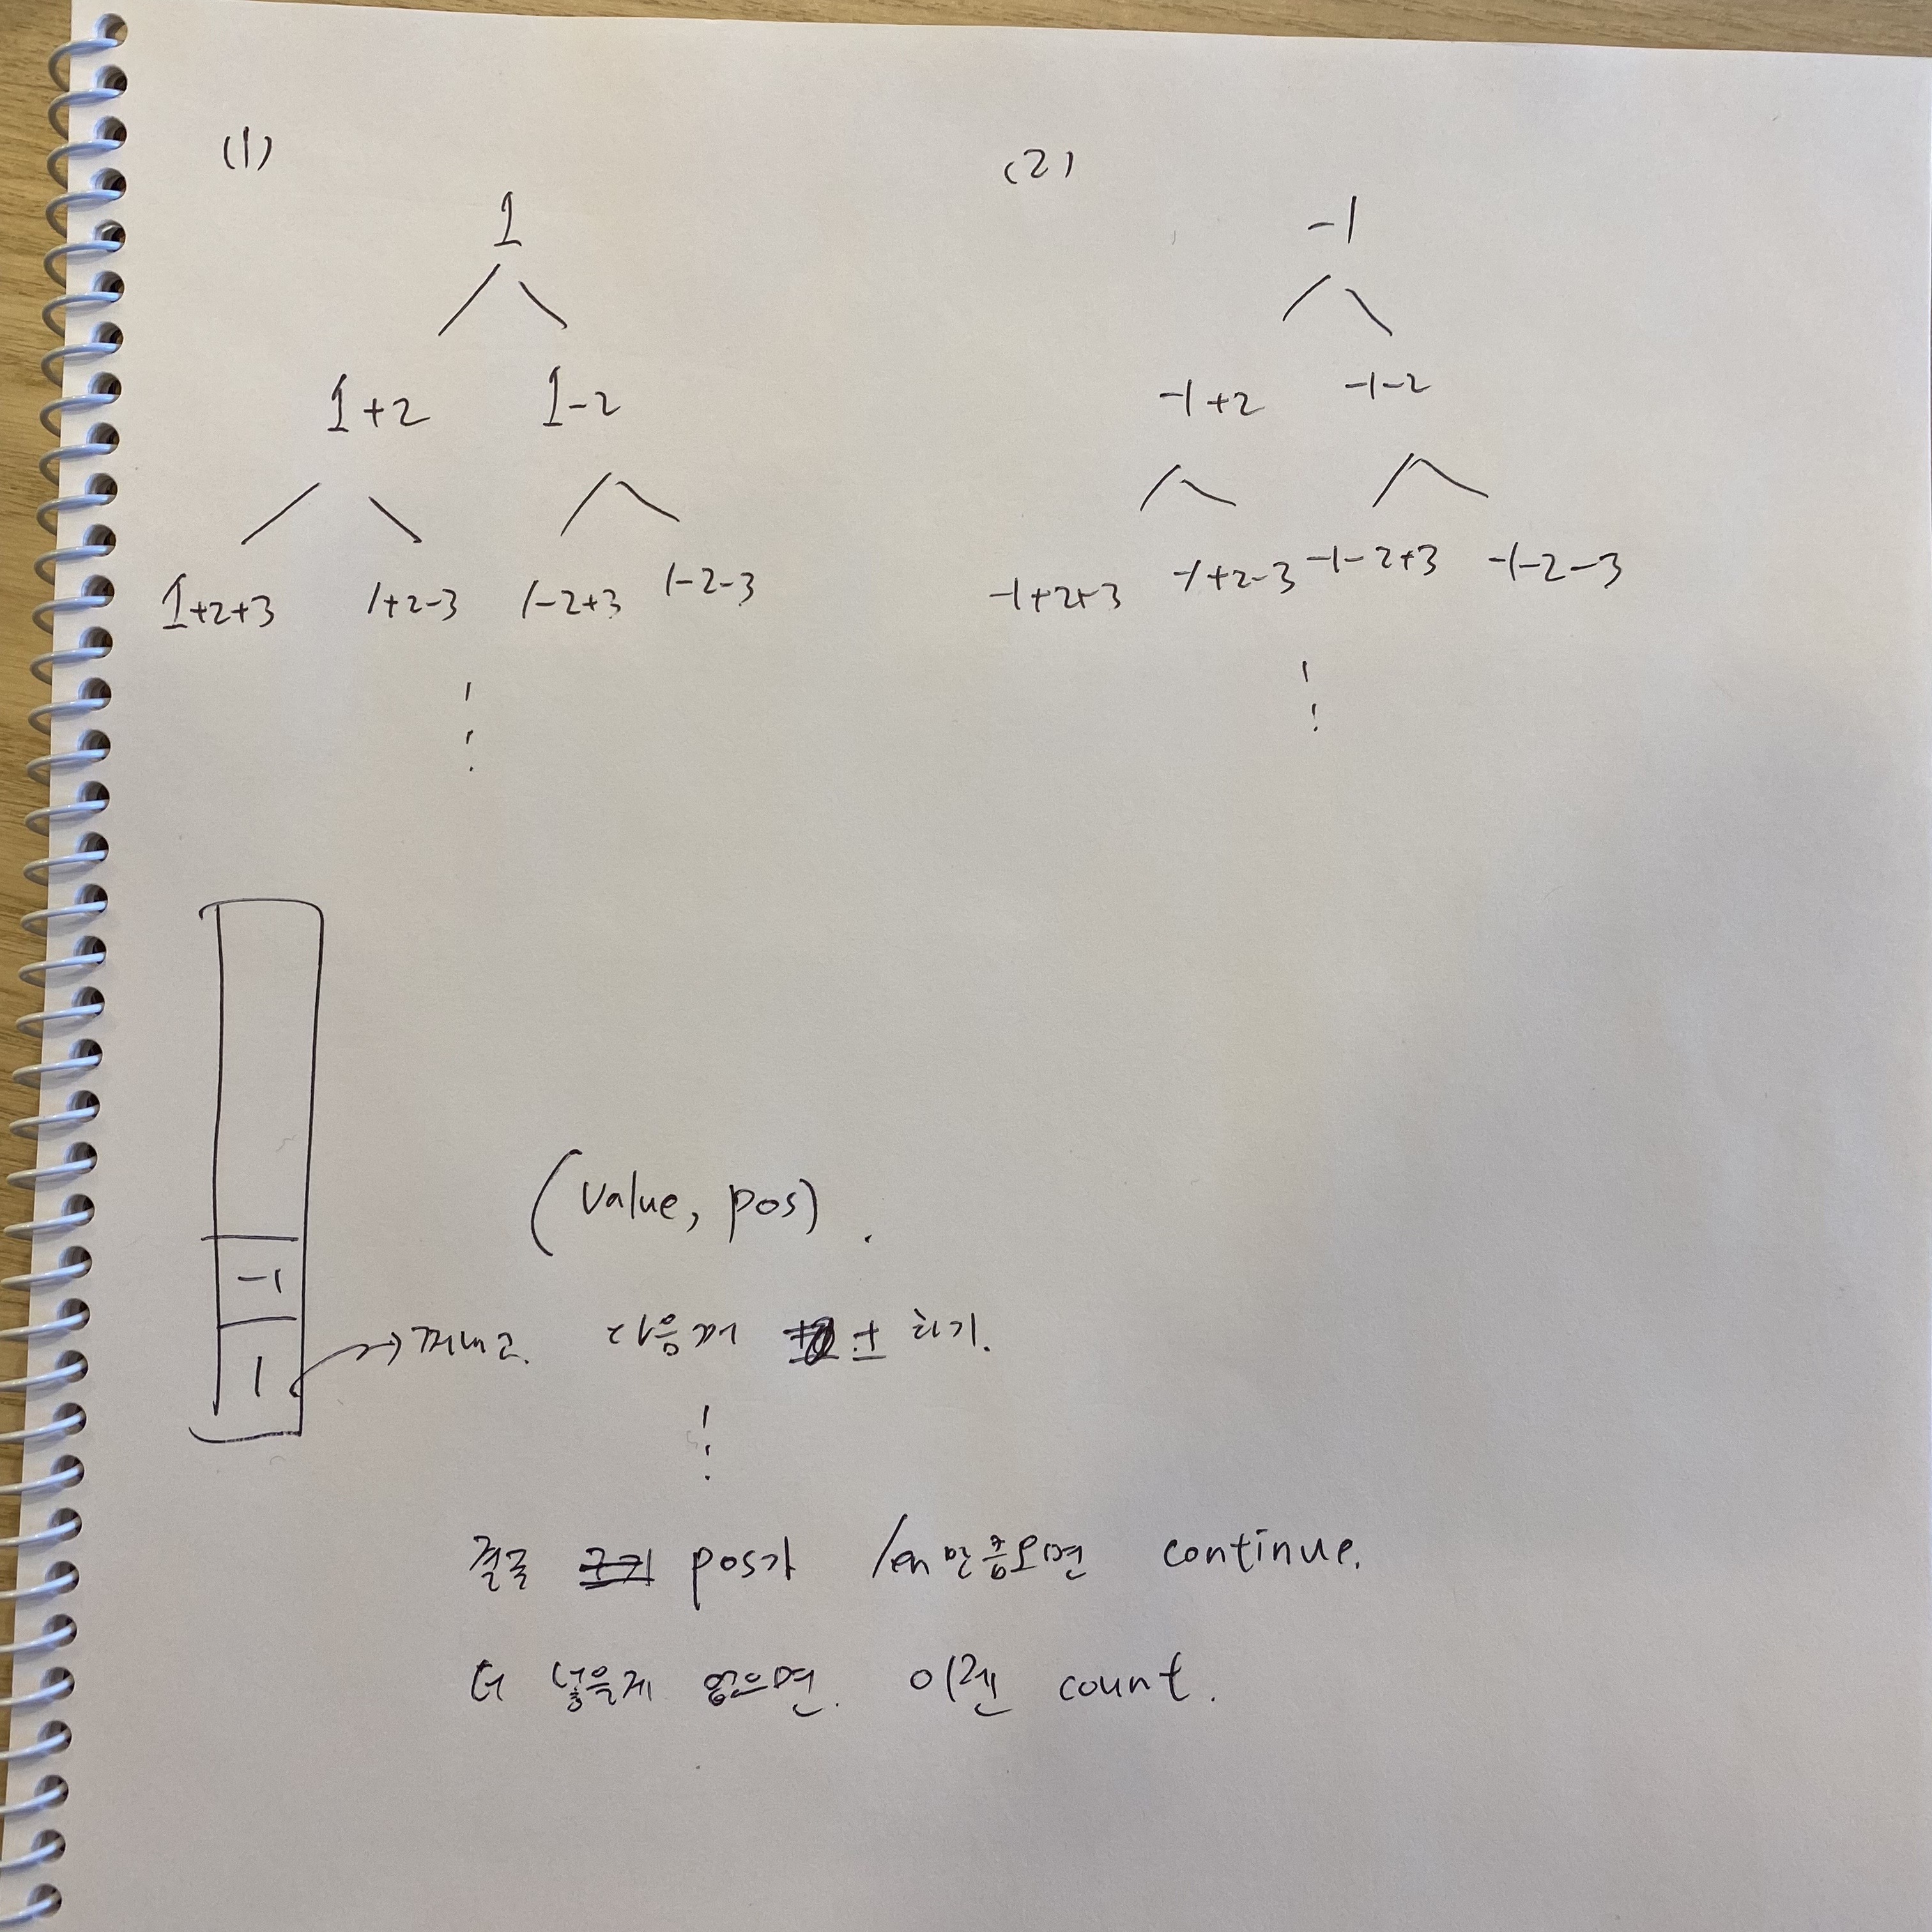 (1)
1
1+2 1-2
1+2+3 1+2-3 1-2+3 1-2-3
(2)
-1
-1+2 -1-2
-1+2+3 -1+2-3 -1-2+3 -1-2-3
-1
1
(value, pos).
→꺼내고. 다음꺼 ± 하기.
결국 pos가 len만큼오면 continue.
더 넣을게 없으면. 이젠 count.